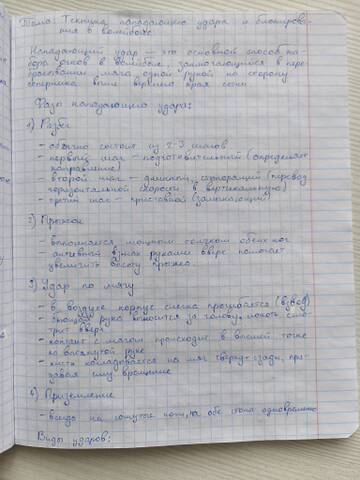 Тема: Техника нападающего удара и блокирова-
ния в волейболе
Нападающий удар – это основной способ на-
бора очков в волейболе, заключающийся в пере-
брасывании мяча одной рукой на сторону
соперника выше верхнего края сетки
Фазы нападающего удара:
1) Разбег
- обычно состоит из 2-3 шагов
- первый шаг – подготовительный (определяет
направление)
- второй шаг – стопорящий (перевод
горизонтальной скорости в вертикальную)
- третий шаг – приставной (замыкающий)
2) Прыжок
- выполняется мощным толчком обеих ног
- активный взмах руками вверх помогает
увеличить высоту прыжка
3) Удар по мячу
- в воздухе корпус слегка прогибается
- бьющая рука заносится за голову, локоть смо-
трит вверх
- контакт с мячом происходит в высшей точке
на вытянутой руке
- кисть накладывается на мяч сверху-сзади, при-
давая ему вращение
4) Приземление
- всегда на согнутые ноги, на обе стопы одновременно
Виды ударов: